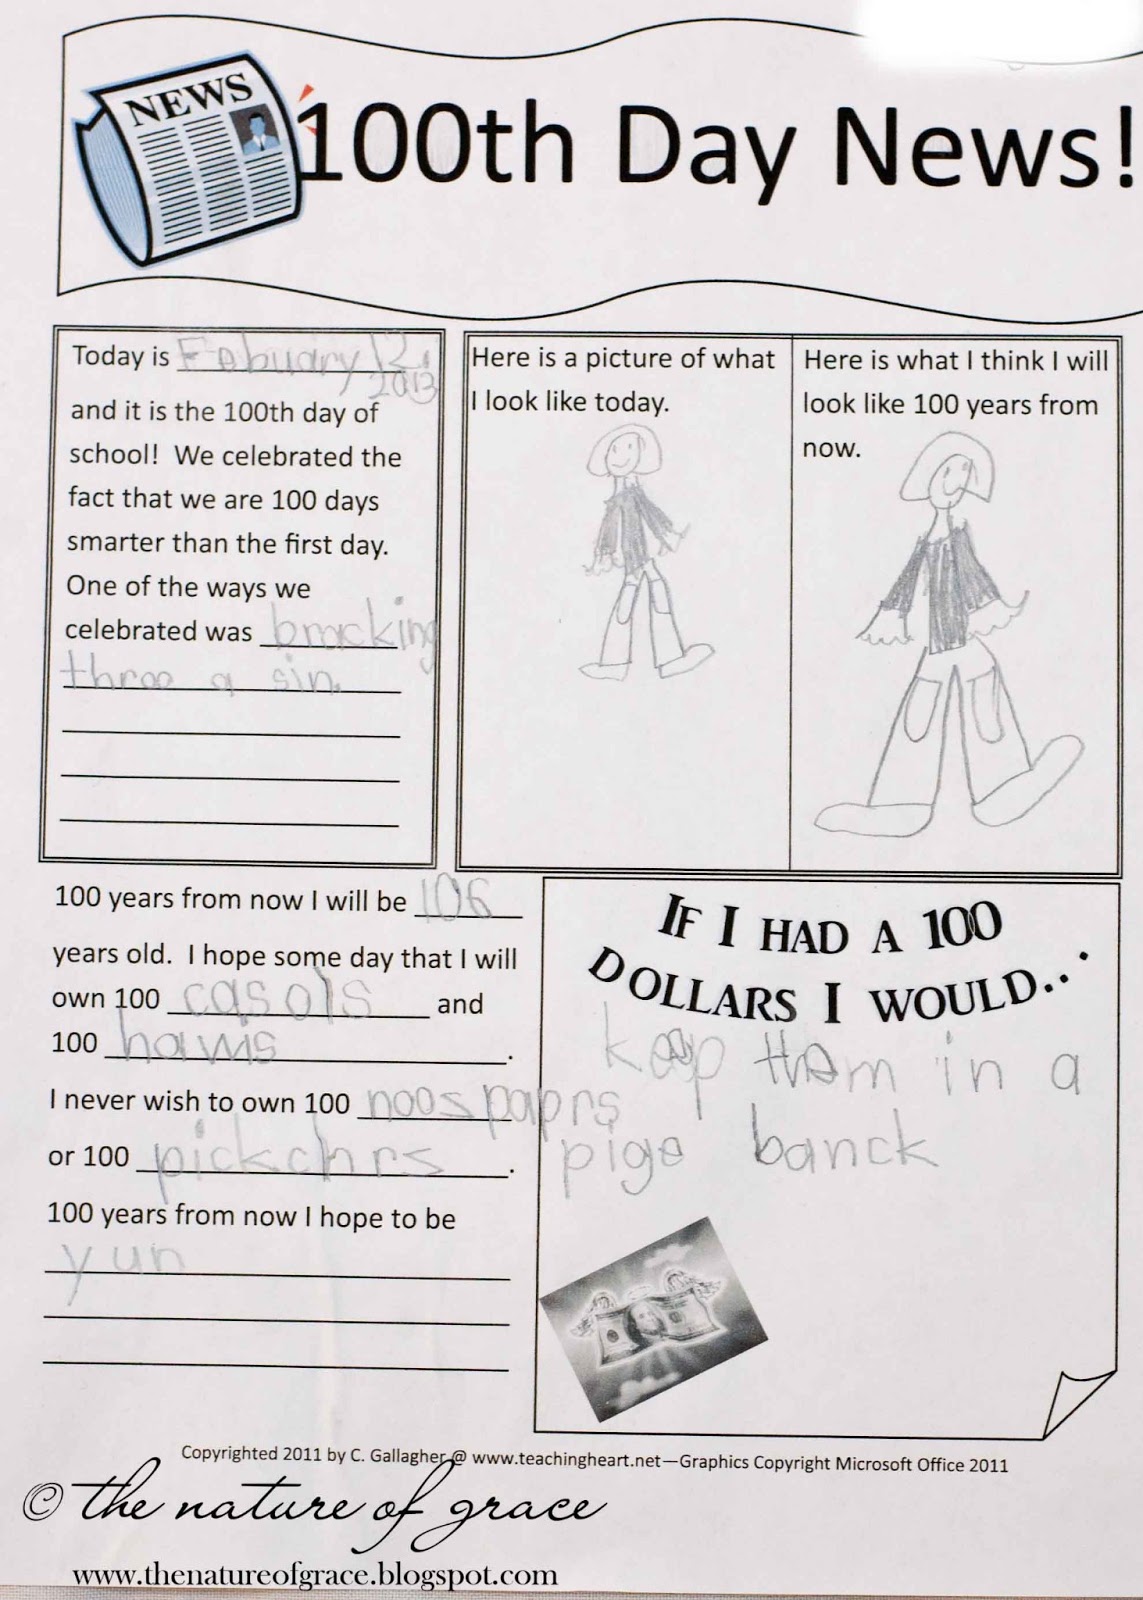 NEWS
100th Day News!
Today is Febuary 12,
2013
and it is the 100th day of
school! We celebrated the
fact that we are 100 days
smarter than the first day.
One of the ways we
celebrated was bracking
throo a sin.
Here is a picture of what
I look like today.
Here is what I think I will
look like 100 years from
now.
100 years from now I will be 106
years old. I hope some day that I will
own 100 casols and
100 hawis.
I never wish to own 100 noospaprs
or 100 pickchrs.
100 years from now I hope to be
yun
IF I HAD A 100
DOLLARS I WOULD...
keep them in a
pige banck
Copyrighted 2011 by C. Gallagher @ www.teachingheart.net—Graphics Copyright Microsoft Office 2011
© the nature of grace
www.thenatureofgrace.blogspot.com